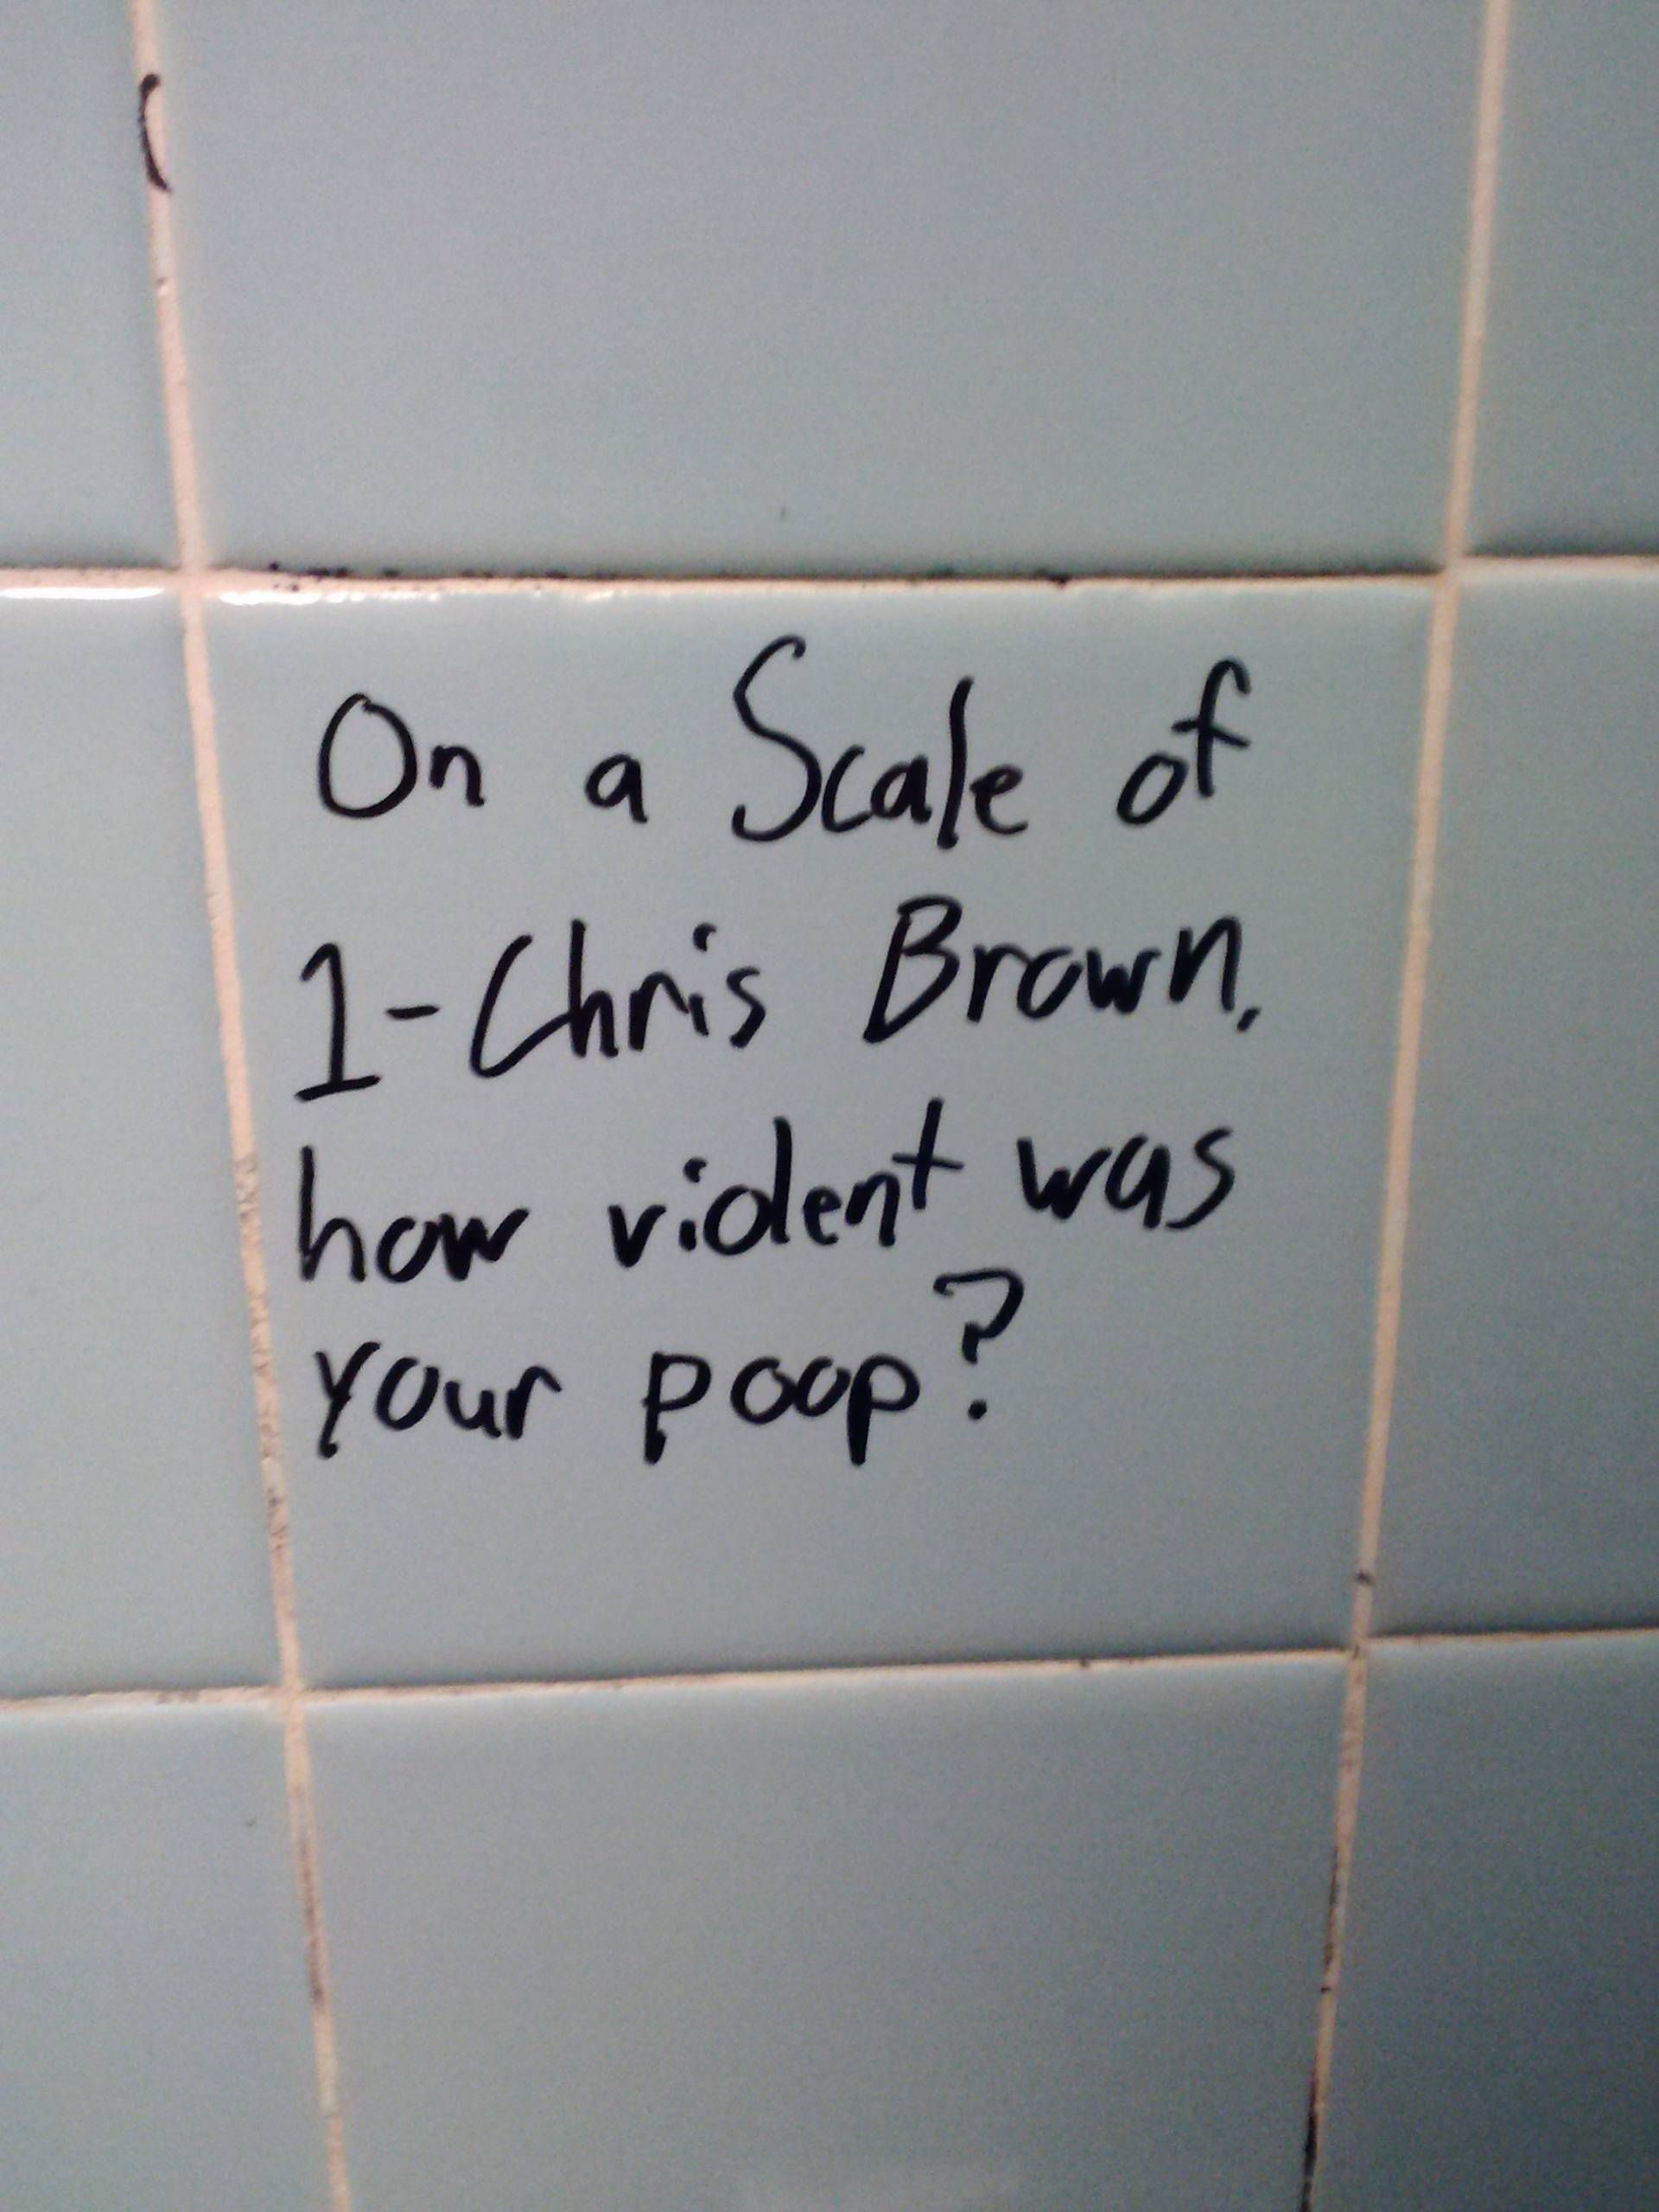 On a Scale of
1-Chris Brown,
how violent was
your poop?